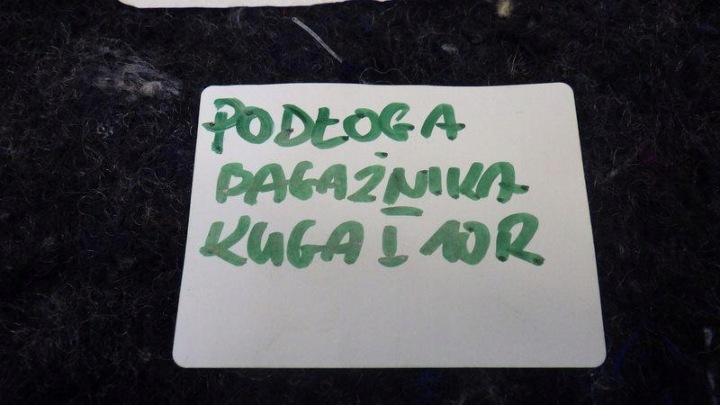 PODŁOGA
BAGAŻNIKA
KUGA I 10R